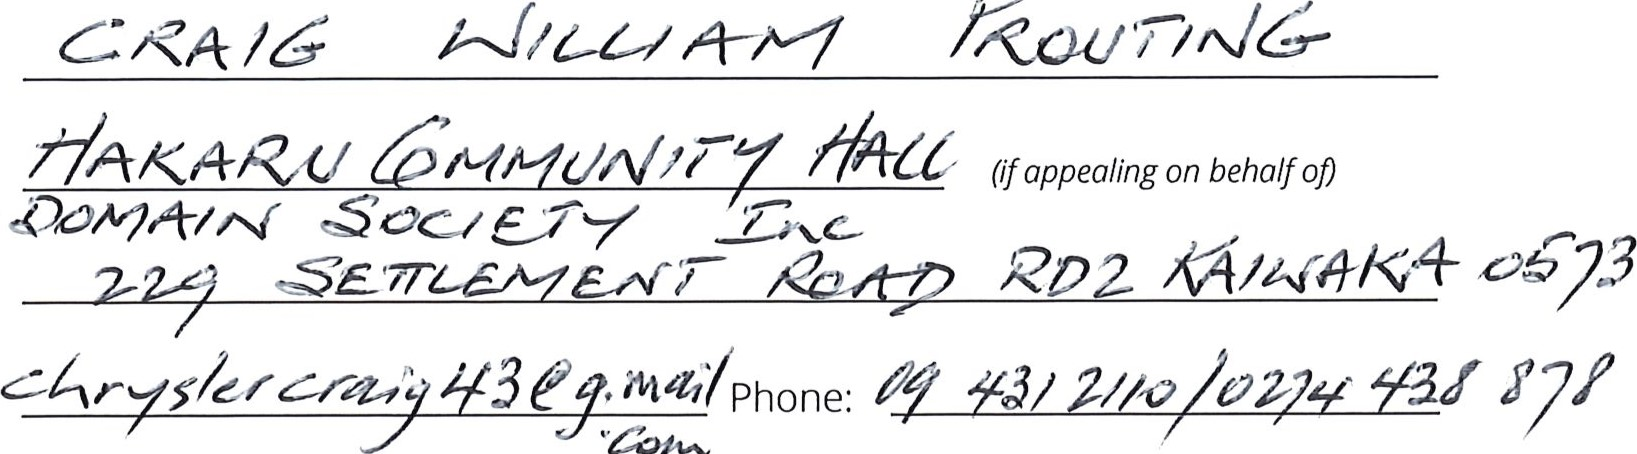 CRAIG WILLIAM PROUTING
HAKARU COMMUNITY HALL (if appealing on behalf of)
DOMAIN SOCIETY Inc
229 SETTLEMENT ROAD RD2 KAIWAKA 0573
chryslercraig43@g.mail Phone: 09 431 2110/0274 438 878
.com